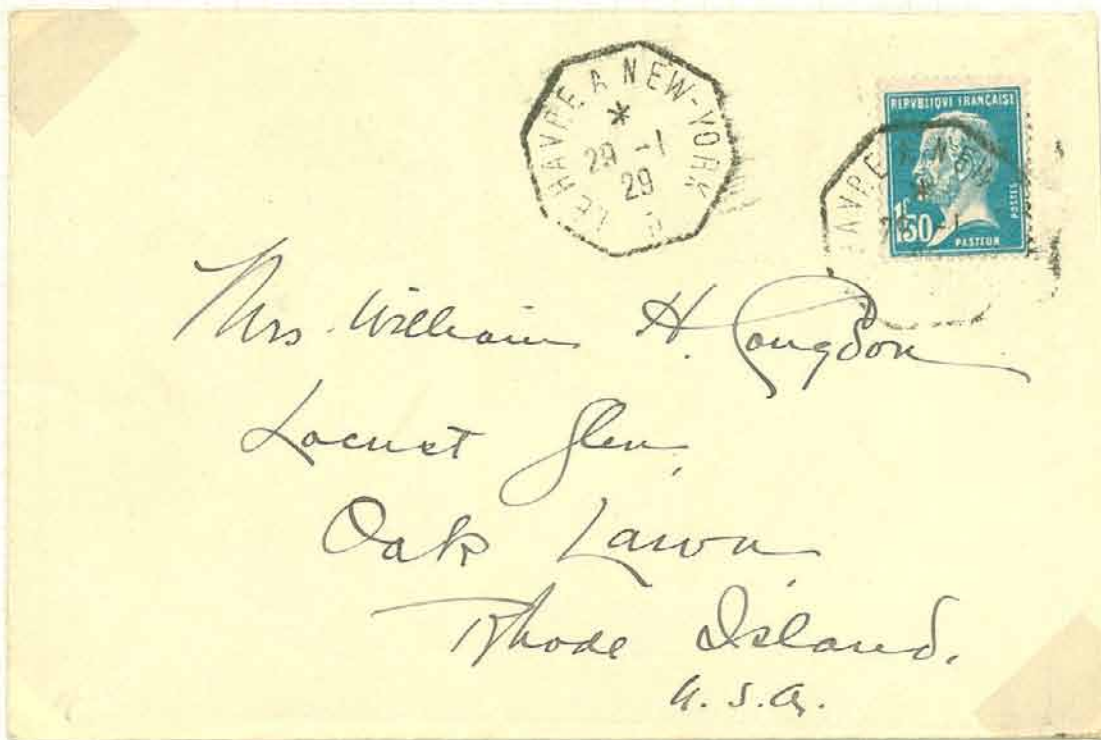 LE HAVRE A NEW-YORK
*
29 -1
29
REPVBLIQUE FRANÇAISE
POSTES
1F50
PASTEUR
Mrs. William H. Congdon
Locust Glen,
Oak Lawn,
Rhode Island.
U.S.A.